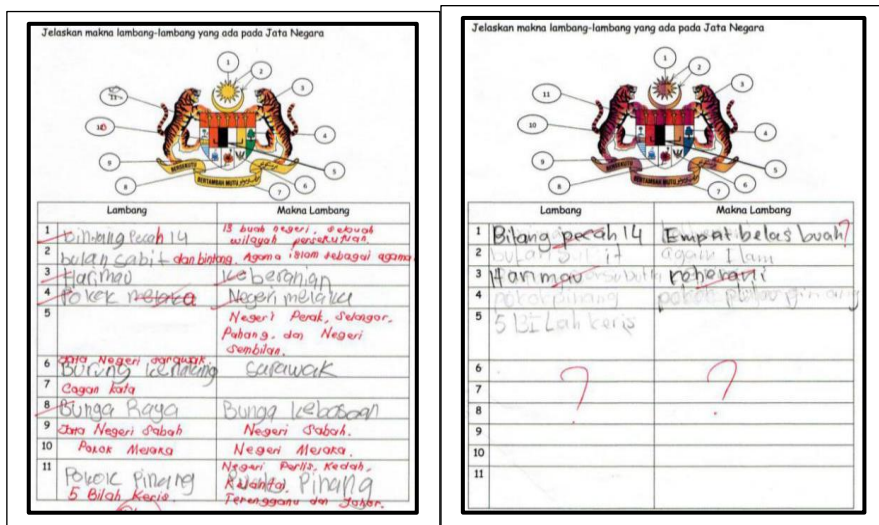 Jelaskan makna lambang-lambang yang ada pada Jata Negara
1
2
3
4
5
6
7
8
9
10
11
BERSEKUTU
BERTAMBAH MUTU
Lambang Makna Lambang
1 Bintang Pecah 14 13 buah negeri, sebuah
wilayah persekutuan.
2 bulan sabit dan bintang. Agama islam sebagai agama
3 Harimau keberanian
4 Pokok melaka Negeri melaka
5 Negeri Perak, Selangor,
Pahang, dan Negeri
Sembilan.
6 Jata Negeri Sarawak
Burung kenyalang Sarawak
7 Cogan kata
8 Bunga Raya Bunga kebasaan
9 Jata Negeri Sabah Negeri Sabah.
10 Pokok Melaka Negeri Melaka.
11 Pokok Pinang Negeri Perlis, Kedah,
5 Bilah Keris Kelantan, Pinang
Terengganu dan Johor.
Jelaskan makna lambang-lambang yang ada pada Jata Negara
1
2
3
4
5
6
7
8
9
10
11
BERSEKUTU
BERTAMBAH MUTU
Lambang Makna Lambang
1 Bitang pecah 14 Empat belas buah?
2 bulan sabit
3 Harimau
4 pokok pinang pokok pulau pinang
5 5 BiLah keris
6 ? ?
7
8
9
10
11